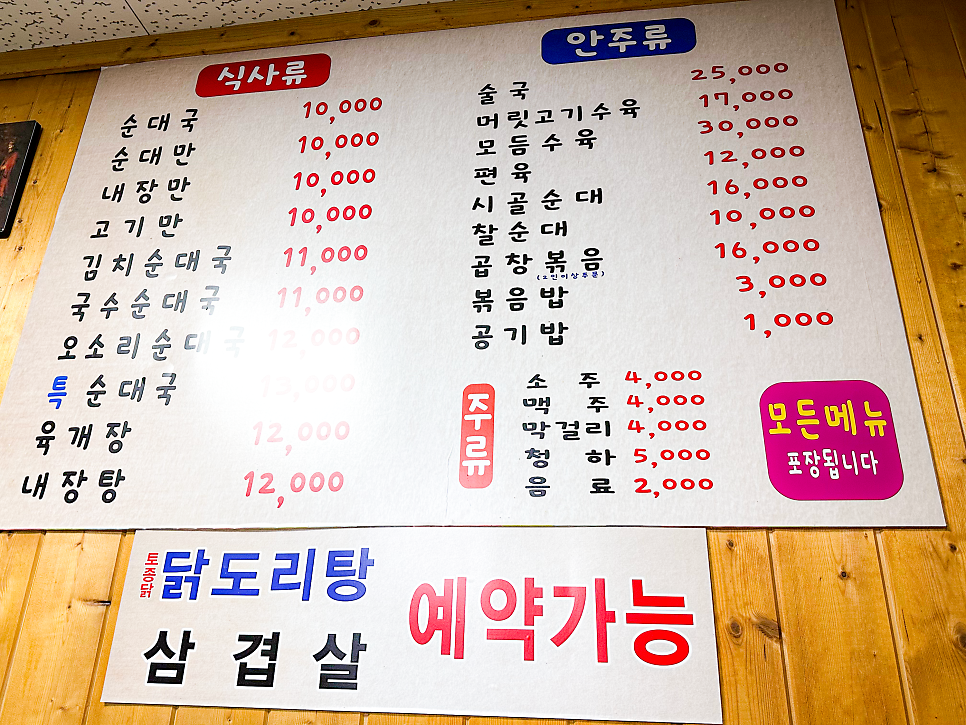 식사류
순대국 10,000
순대만 10,000
내장만 10,000
고기만 10,000
김치순대국 11,000
국수순대국 11,000
오소리순대국 12,000
특 순대국 13,000
육개장 12,000
내장탕 12,000
안주류
술국 25,000
머릿고기수육 17,000
모듬수육 30,000
편육 12,000
시골순대 16,000
찰순대 10,000
곱창볶음 16,000
(2인이상주문)
볶음밥 3,000
공기밥 1,000
주류
소주 4,000
맥주 4,000
막걸리 4,000
청하 5,000
음료 2,000
모든메뉴
포장됩니다
토종닭 닭도리탕
삼겹살
예약가능